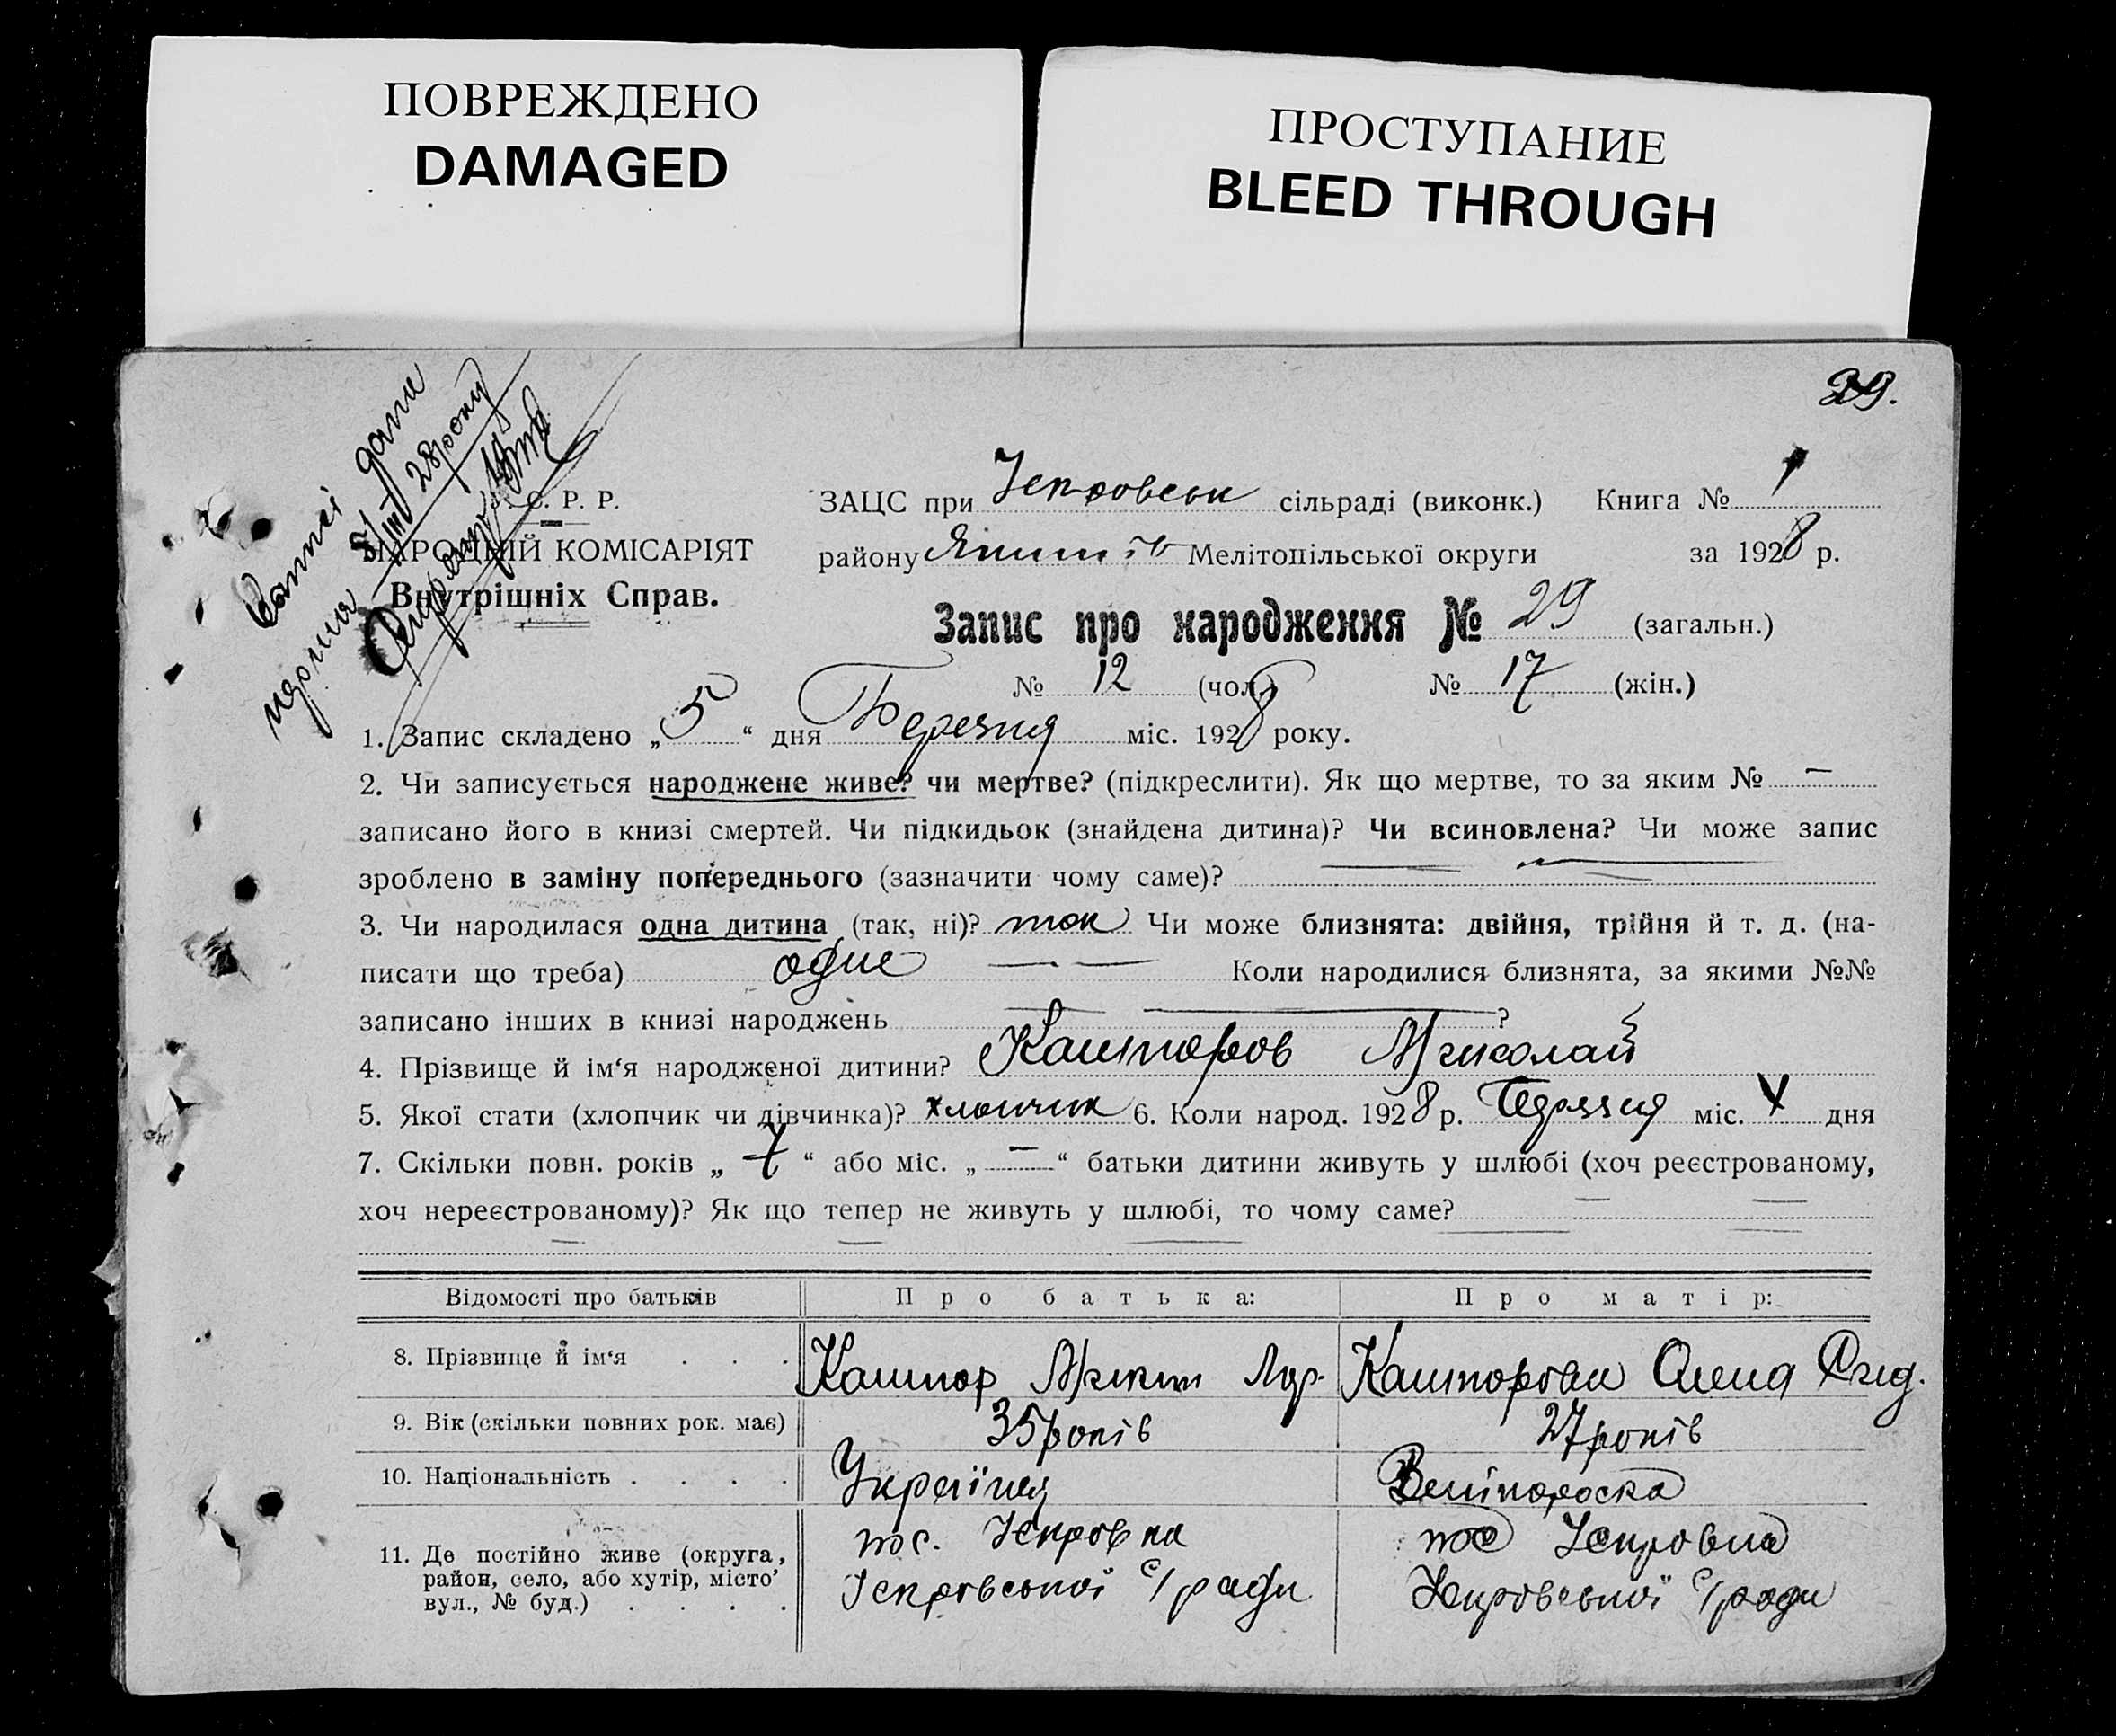 ПОВРЕЖДЕНО
DAMAGED
ПРОСТУПАНИЕ
BLEED THROUGH
29.
дана
28 року
С. Р. Р.
НАРОДНІЙ КОМІСАРІЯТ
Внутрішніх Справ.
ЗАЦС при сільраді (виконк.) Книга № 1
району Мелітопільської округи за 1928 р.
Запис про народження № 29 (загальн.)
№ 12 (чол.) № 17 (жін.)
1. Запис складено „5“ дня Березня міс. 1928 року.
2. Чи записується народжене живе? чи мертве? (підкреслити). Як що мертве, то за яким № —
записано його в книзі смертей. Чи підкидьок (знайдена дитина)? Чи всиновлена? Чи може запис
зроблено в заміну попереднього (зазначити чому саме)?
3. Чи народилася одна дитина (так, ні)? так Чи може близнята: двійня, трійня й т. д. (на-
писати що треба) одне — — Коли народилися близнята, за якими №№
записано інших в книзі народжень ?
4. Прізвище й ім‘я народженої дитини? Кашторов Миколай
5. Якої стати (хлопчик чи дівчинка)? хлопчик 6. Коли народ. 1928 р. Березня міс. дня
7. Скільки повн. років „ “ або міс. „ — “ батьки дитини живуть у шлюбі (хоч реєстрованому,
хоч нереєстрованому)? Як що тепер не живуть у шлюбі, то чому саме?
Відомості про батьків Про батька: Про матір:
8. Прізвище й ім‘я . . . Каштор Кашторова Олена
9. Вік (скільки повних рок. має) 35 років 27 років
10. Національність . . . . Українец Великороска
11. Де постійно живе (округа,
район, село, або хутір, місто’
вул., № буд.) . . . .
с/ради с/ради